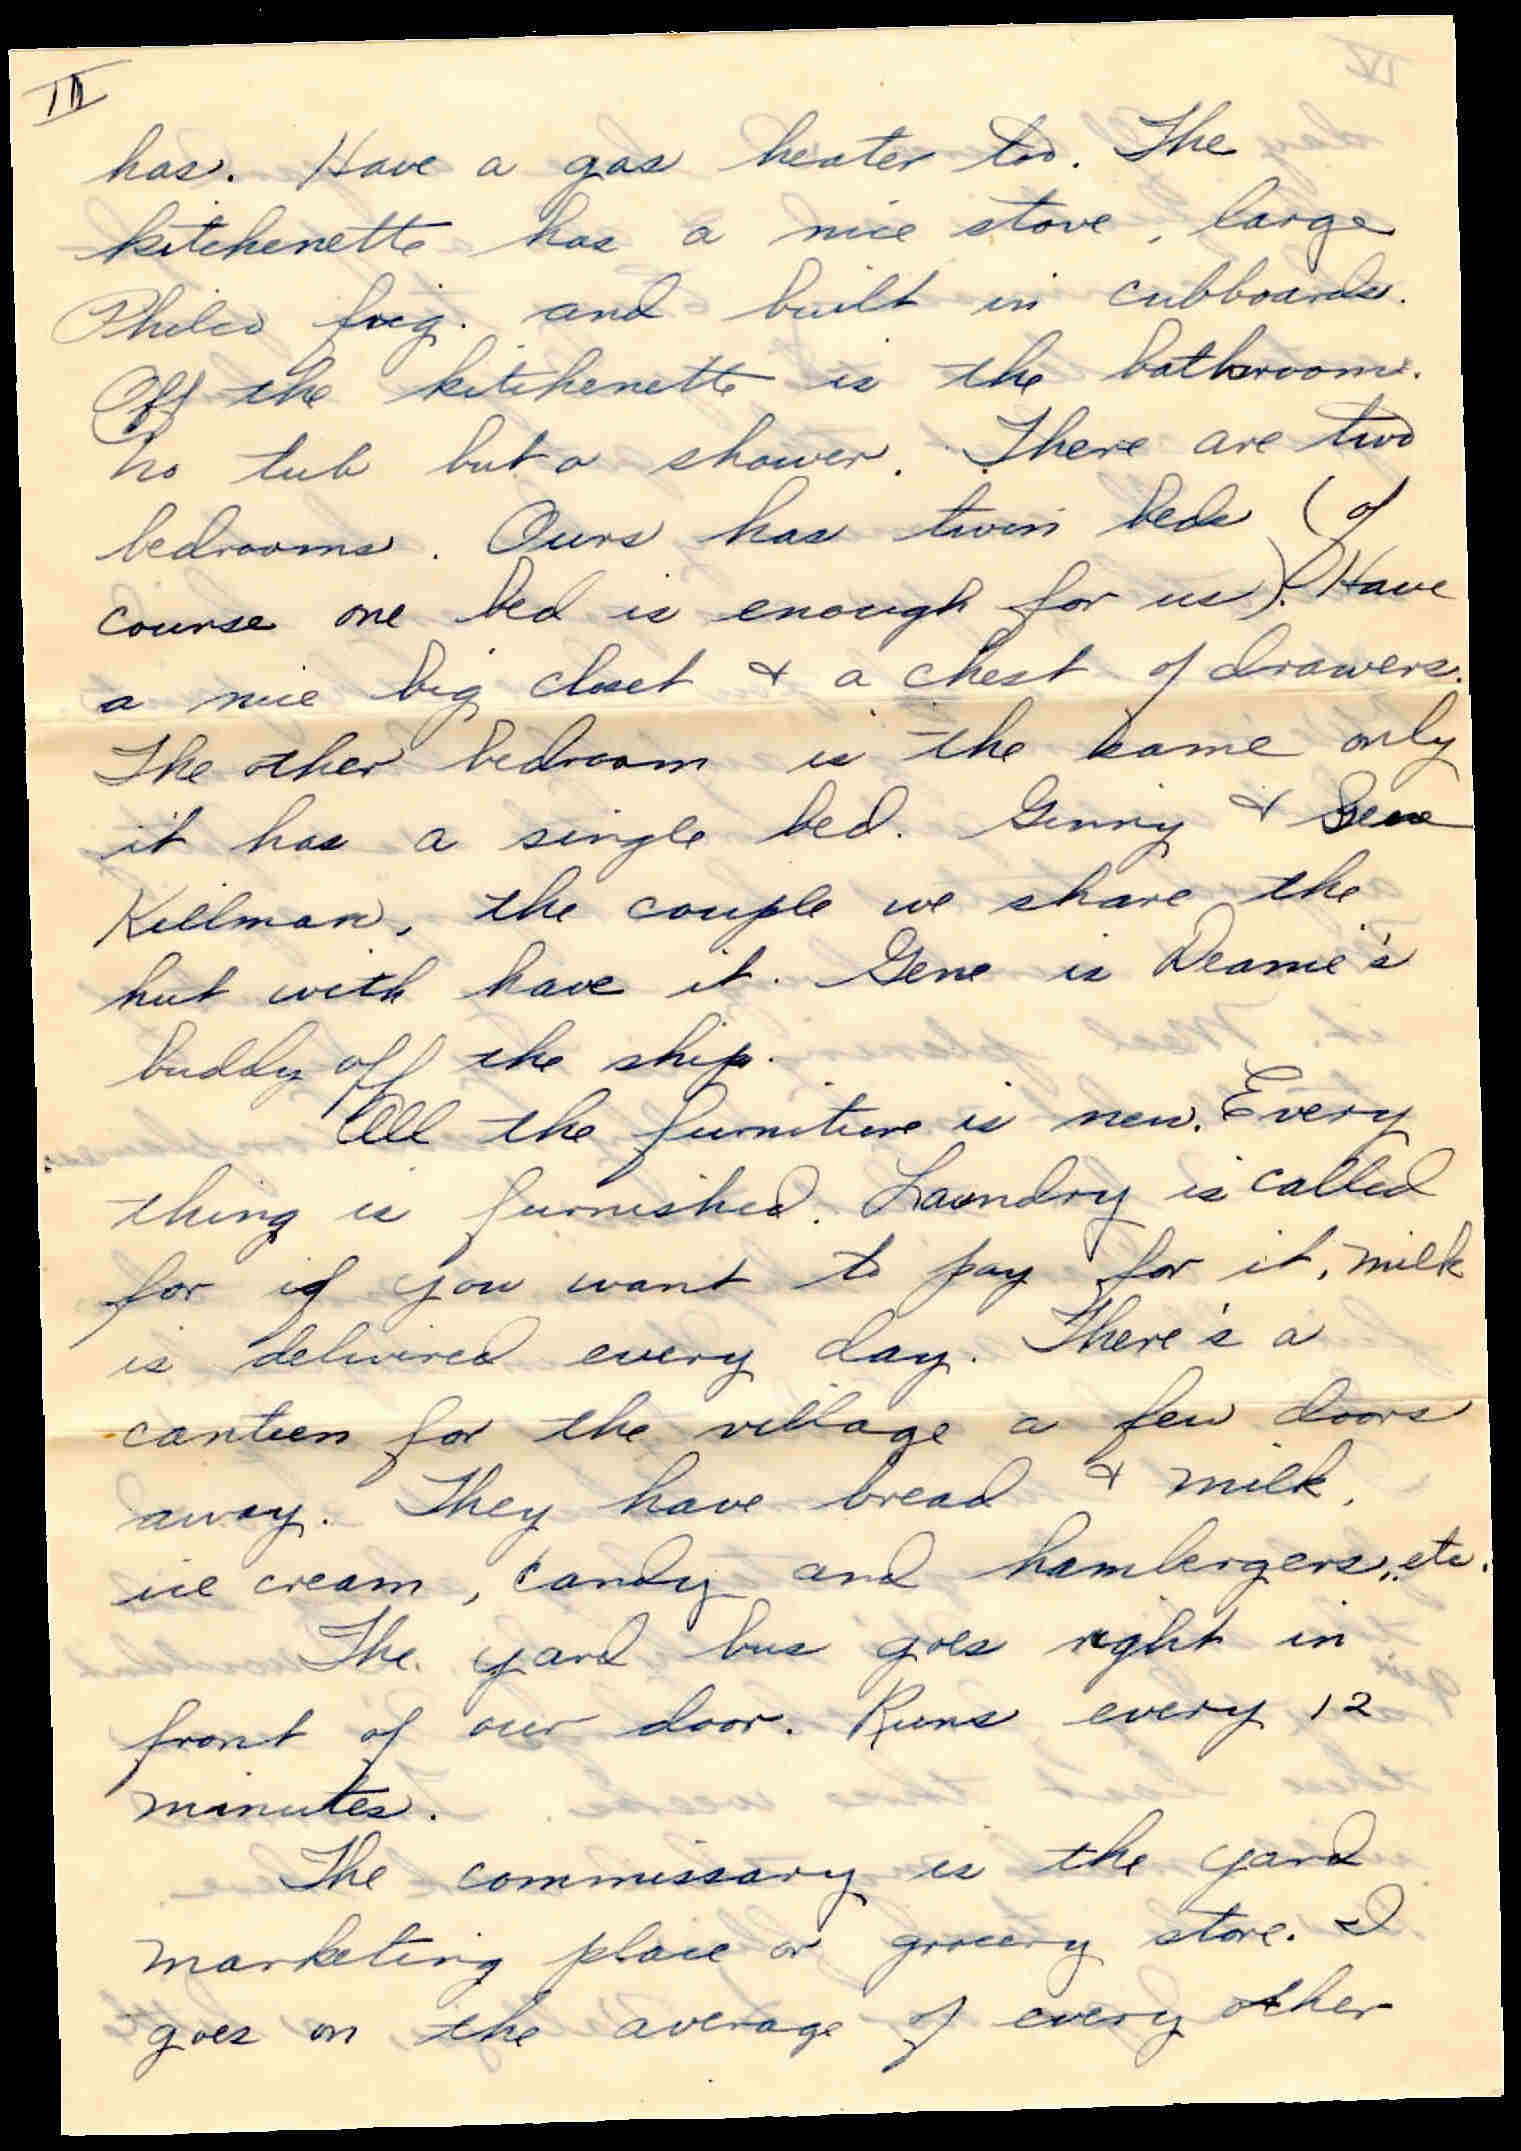 III
has. Have a gas heater too. The
kitchenette has a nice stove, large
Philco frig. and built in cubboards.
Off the kitchenette is the bathroom.
No tub but a shower. There are two
bedrooms. Ours has twin beds (of
course one bed is enough for us). Have
a nice big closet & a chest of drawers.
The other bedroom is the same only
it has a single bed. Ginny & Gene
Killman, the couple we share the
hut with have it. Gene is Deanie's
buddy off the ship.
All the furniture is new. Every
thing is furnished. Laundry is called
for if you want to pay for it, milk
is delivired every day. There's a
canteen for the village a few doors
away. They have bread & milk,
ice cream, candy and hambergers, etc.
The yard bus goes right in
front of our door. Runs every 12
minutes.
The commissary is the yard
marketing place or grocery store. I
goes on the average of every other